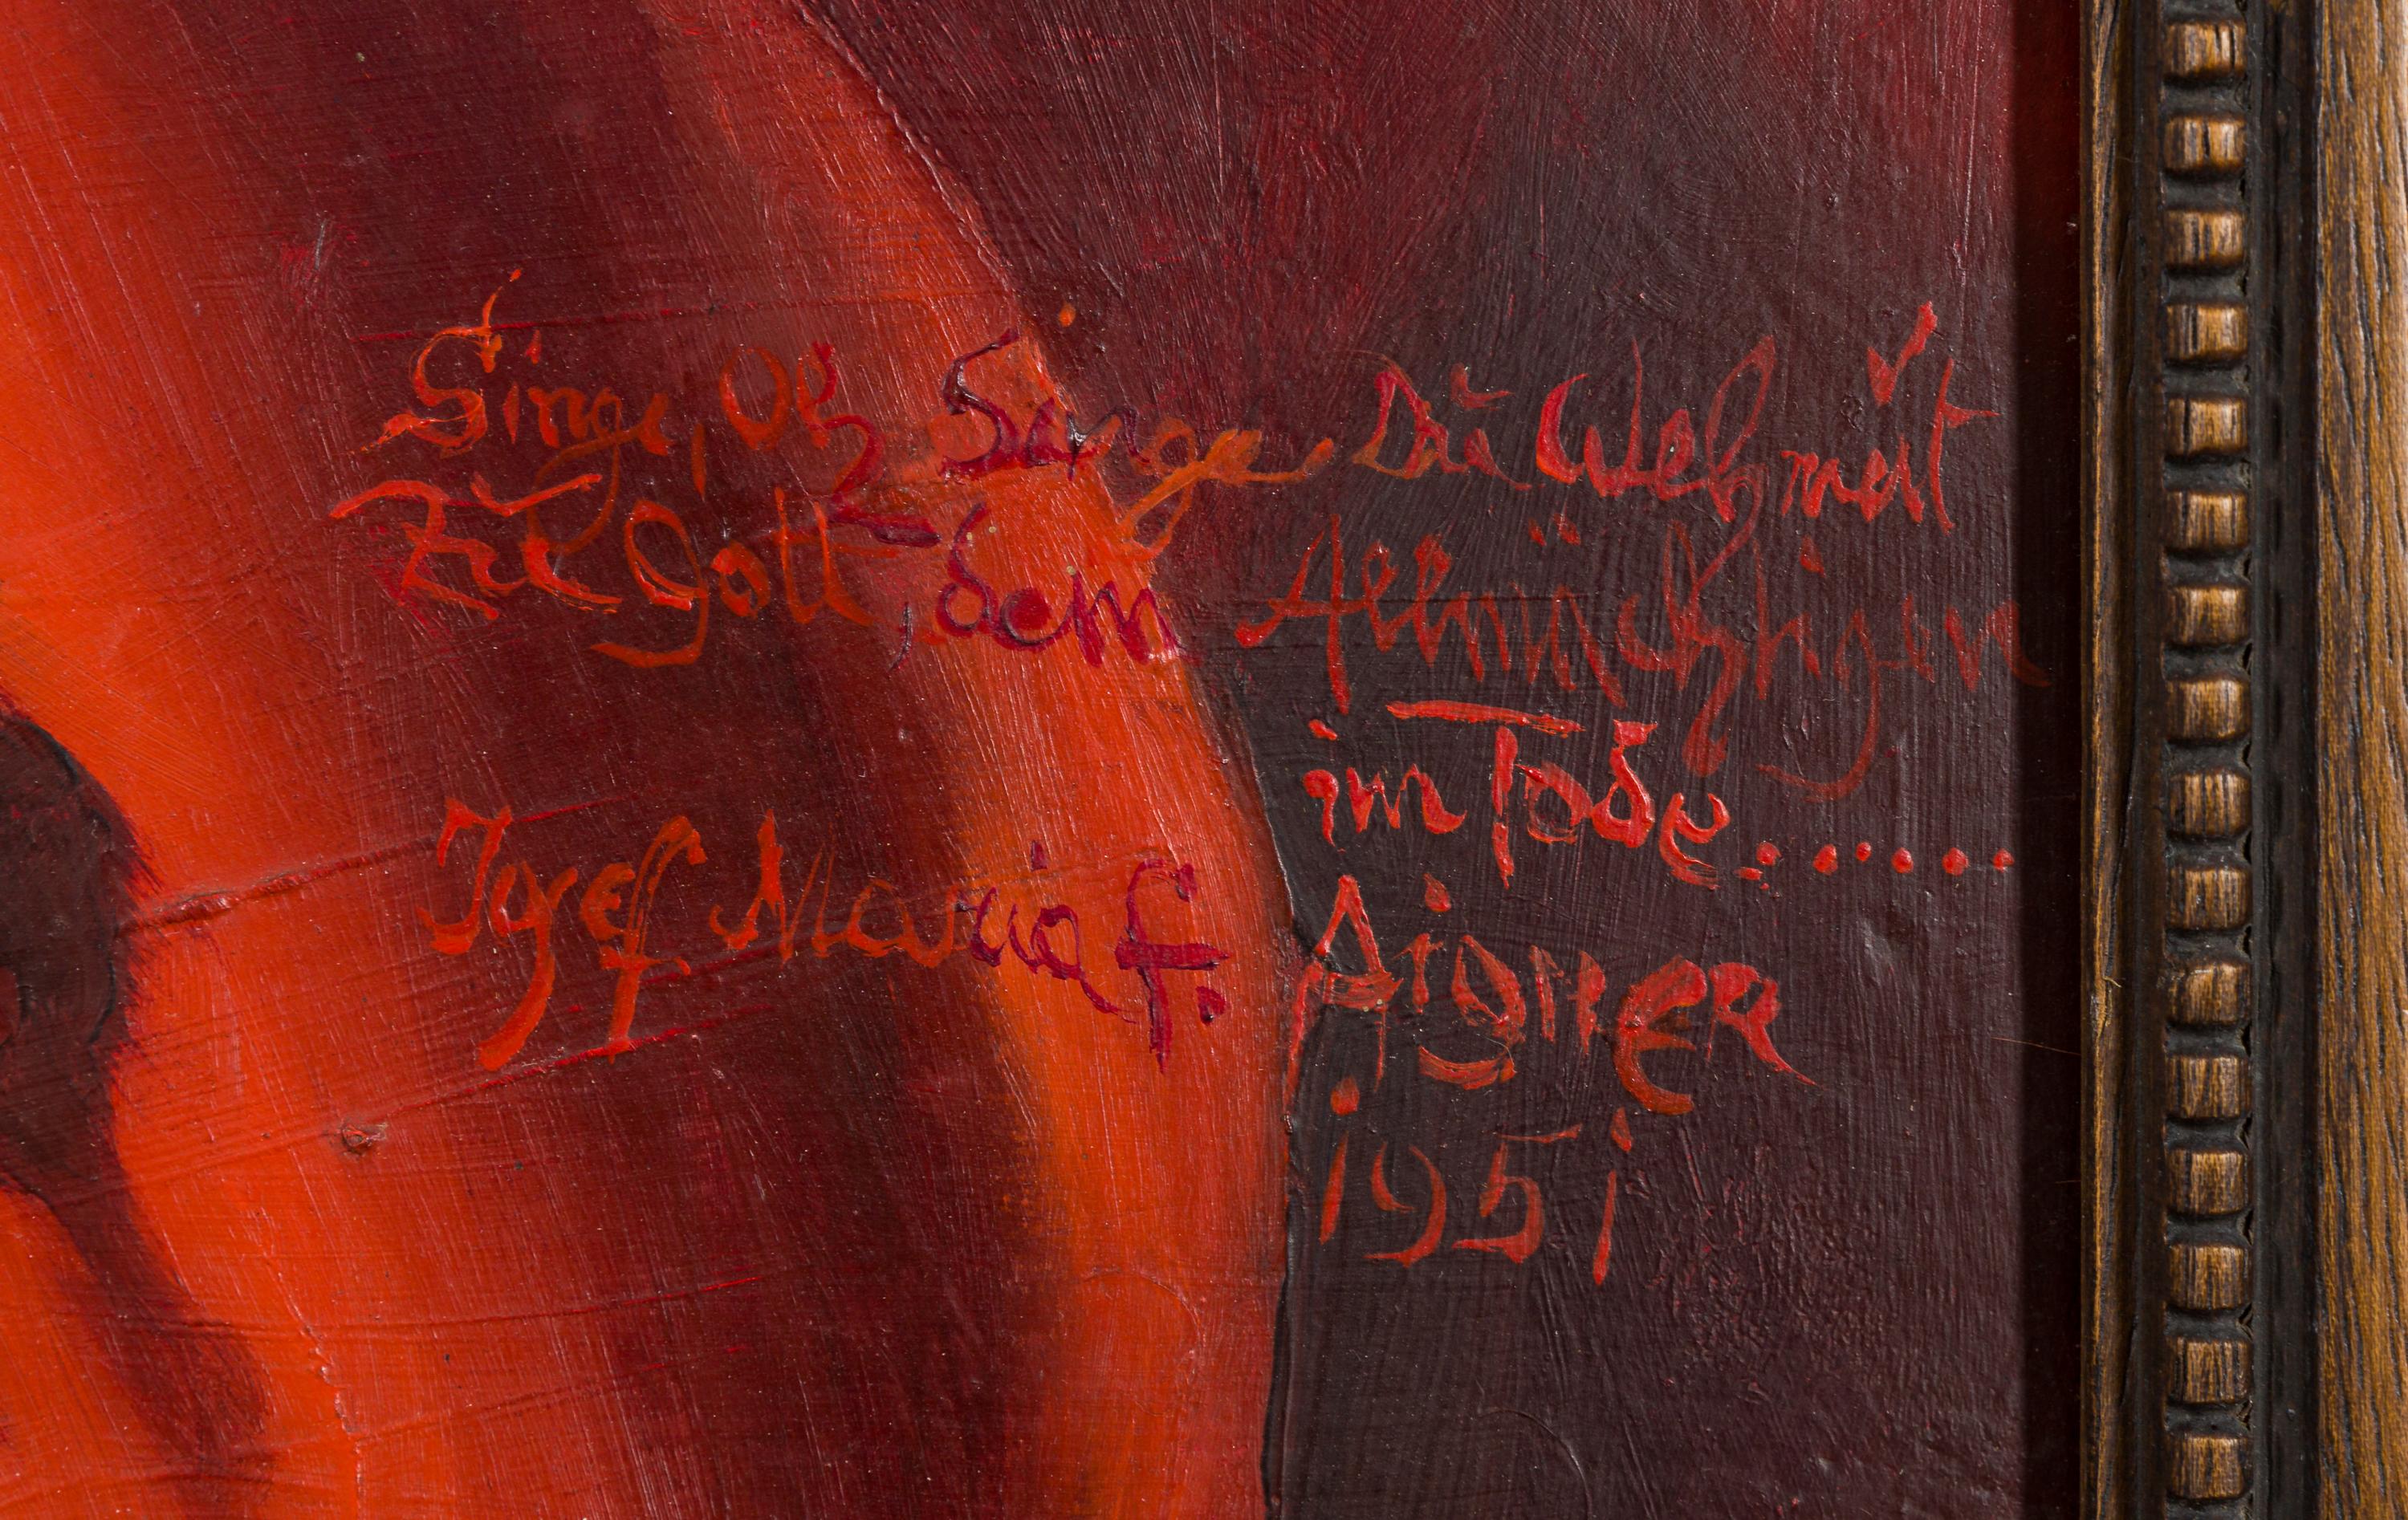 Singe, Oh Singe, Die Wehmut
Zu Gott, dem Allmächtigen
im Tode......
Josef Maria f. Aigner
1951